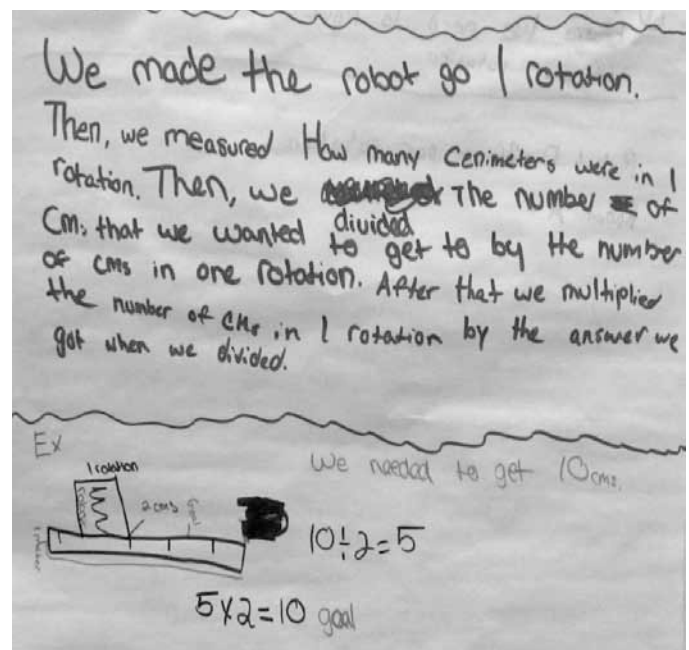 We made the robot go 1 rotation.
Then, we measured How many Cenimeters were in 1
rotation. Then, we divided The number of
Cm. that we wanted to get to by the number
of cms in one rotation. After that we multiplied
the number of cms in 1 rotation by the answer we
got when we divided.
Ex
We needed to get 10cms.
1 rotation
2 cms
Goal
10÷2=5
5x2=10 goal